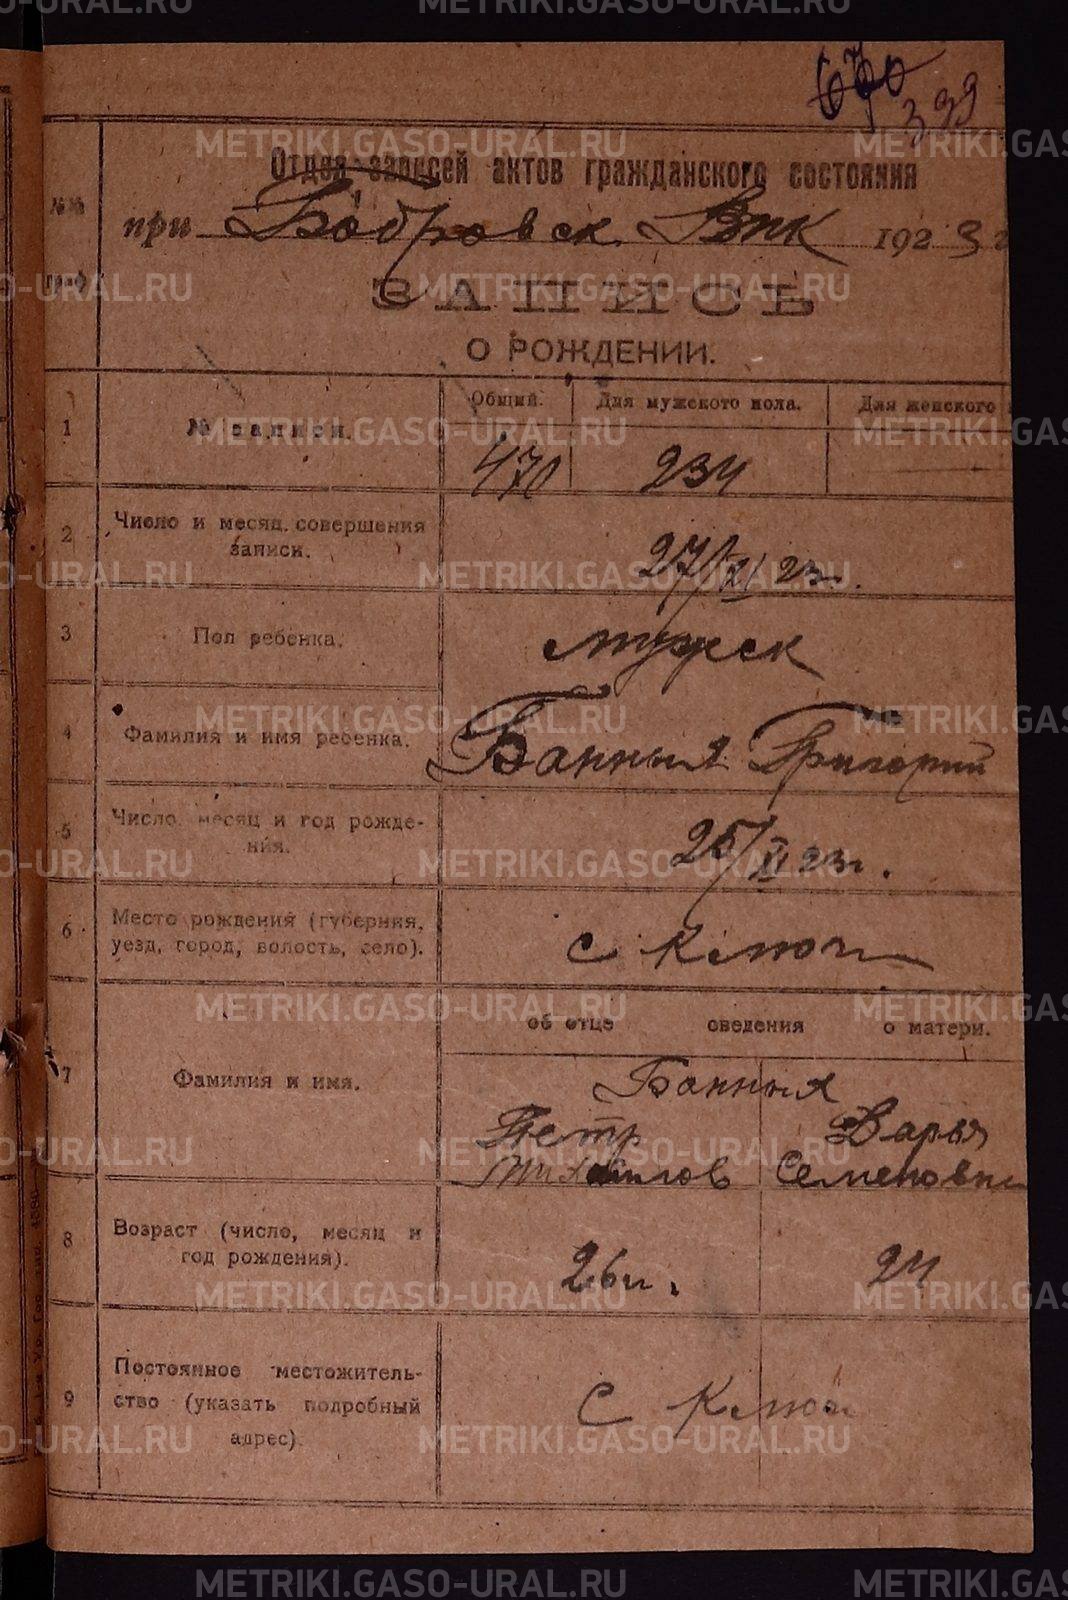 399
Отдел записей актов гражданского состояния
при Бобровск. Вик 1923 г
№№ граф
ЗАПИСЬ
О РОЖДЕНИИ.
1 № записи. Общий. Для мужского пола. Для женского
470 234
2 Число и месяц совершения записи. 27/XI 23 г.
3 Пол ребенка. мужск
4 Фамилия и имя ребенка. Банных Григорий
5 Число, месяц и год рожде-
ния. 25/XI 23 г.
6 Место рождения (губерния,
уезд, город, волость, село). с Ключи
об отце сведения о матери.
7 Фамилия и имя. Банных
Петр Дарья
Михайлов Семеновна
8 Возраст (число, месяц и
год рождения). 26 л. 24
9 Постоянное местожитель-
ство (указать подробный
адрес). С Ключи
METRIKI.GASO-URAL.RU